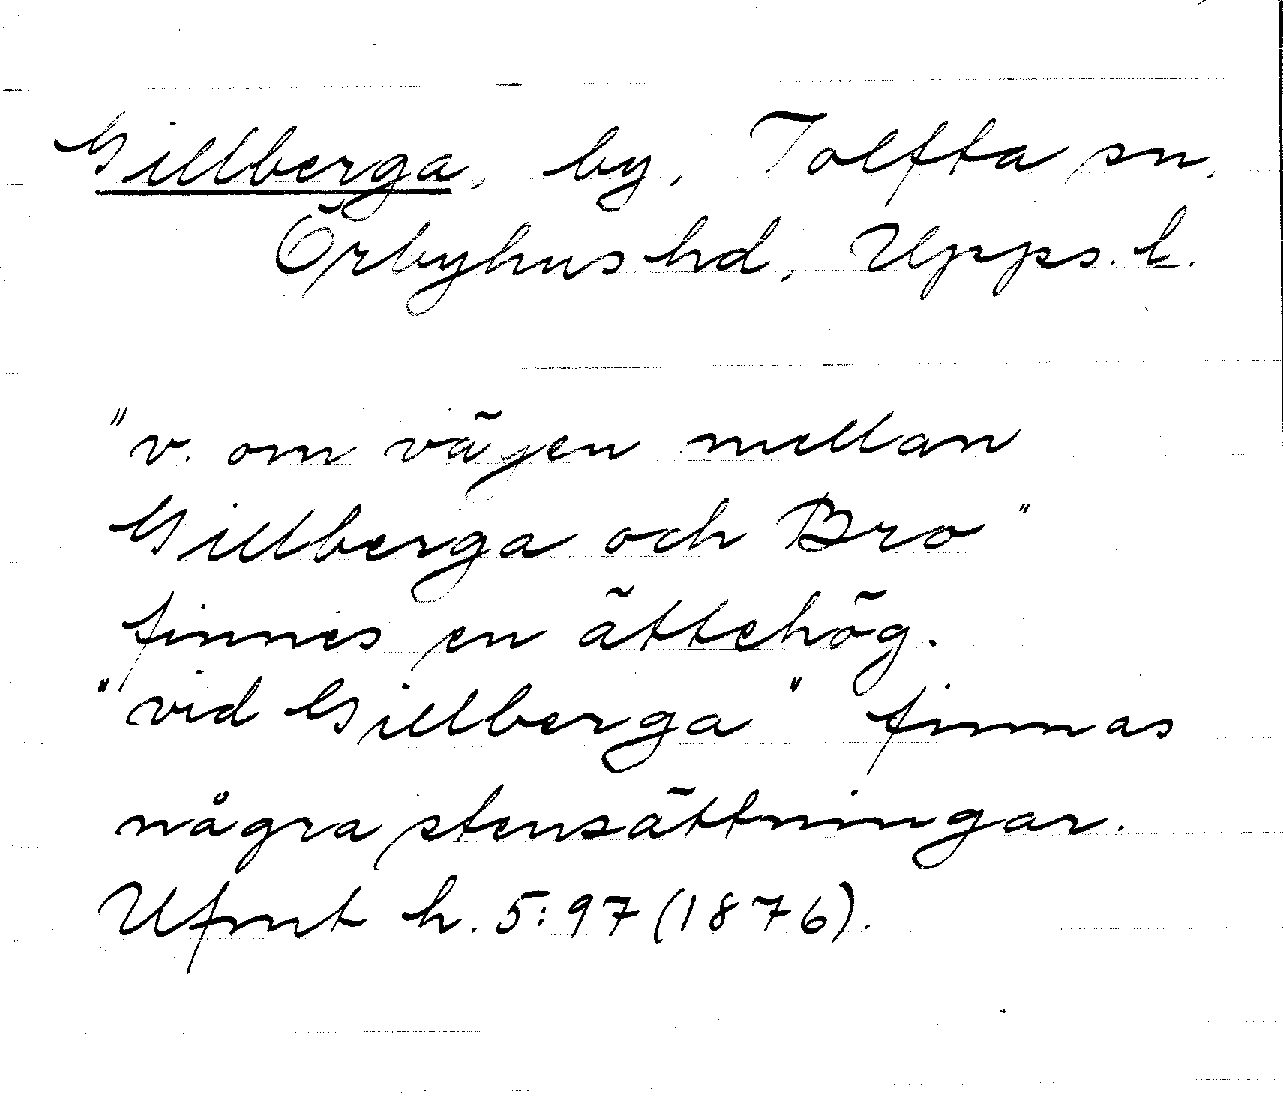 Gillberga, by, Tolfta sn.
Örbyhus hd, Upps. l.
"v. om väjen mellan
Gillberga och Bro"
finnes en ättehög.
"vid Gillberga" finnas
några stensättningar.
Ufmt h. 5:97 (1876).